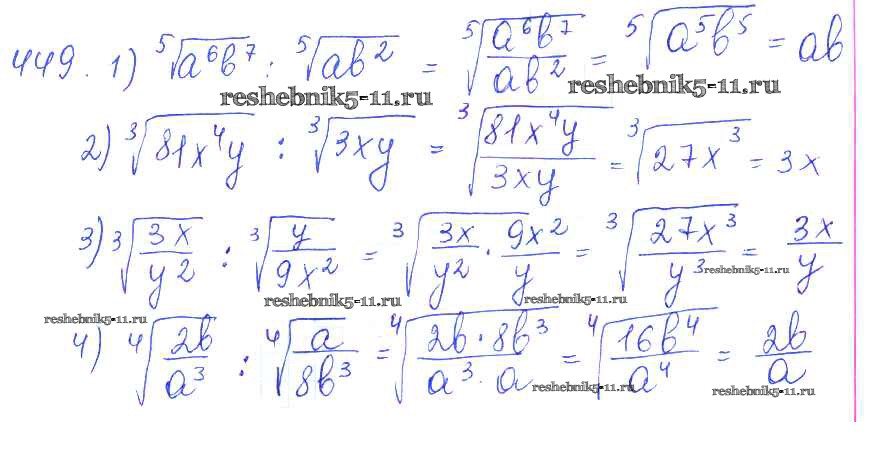 449. 1) ⁵√(a⁶b⁷) : ⁵√(ab²) = ⁵√(a⁶b⁷/ab²) = ⁵√(a⁵b⁵) = ab
reshebnik5-11.ru reshebnik5-11.ru
2) ³√(81x⁴y) : ³√(3xy) = ³√(81x⁴y/3xy) = ³√(27x³) = 3x
3) ³√(3x/y²) : ³√(y/9x²) = ³√(3x/y² · 9x²/y) = ³√(27x³/y³) = 3x/y
reshebnik5-11.ru reshebnik5-11.ru reshebnik5-11.ru
reshebnik5-11.ru
4) ⁴√(2b/a³) : ⁴√(a/8b³) = ⁴√(2b·8b³/a³·a) = ⁴√(16b⁴/a⁴) = 2b/a
reshebnik5-11.ru reshebnik5-11.ru